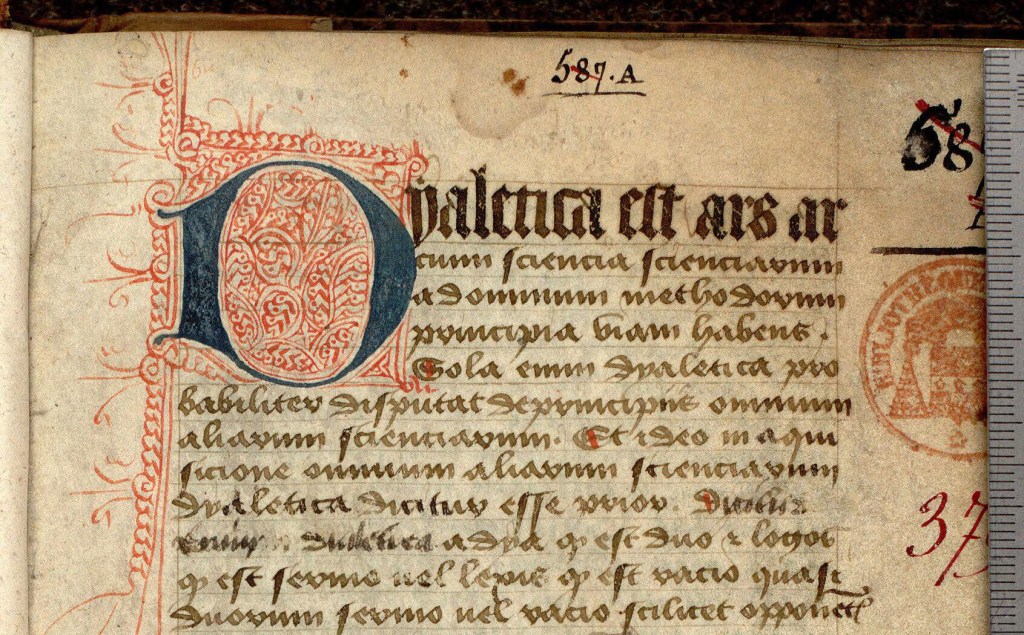 587.A
58
Dyaletica est ars ar
cium sciencia scienciarum
ad omnium methodorum
principia viam habens.
Sola enim dyaletica pro
babiliter disputat de principiis omnium
aliarum scienciarum. Et ideo in aqui
sicione omnium aliarum scienciarum
dyaletica dicitur esse prior. Dicitur
dialetica a dya qꝫ est duo ⁊ logos
qꝫ est sermo uel lexis qꝫ est racio quasi
duorum sermo uel racio scilicet opponent
BIBLIOTHEQUE
37